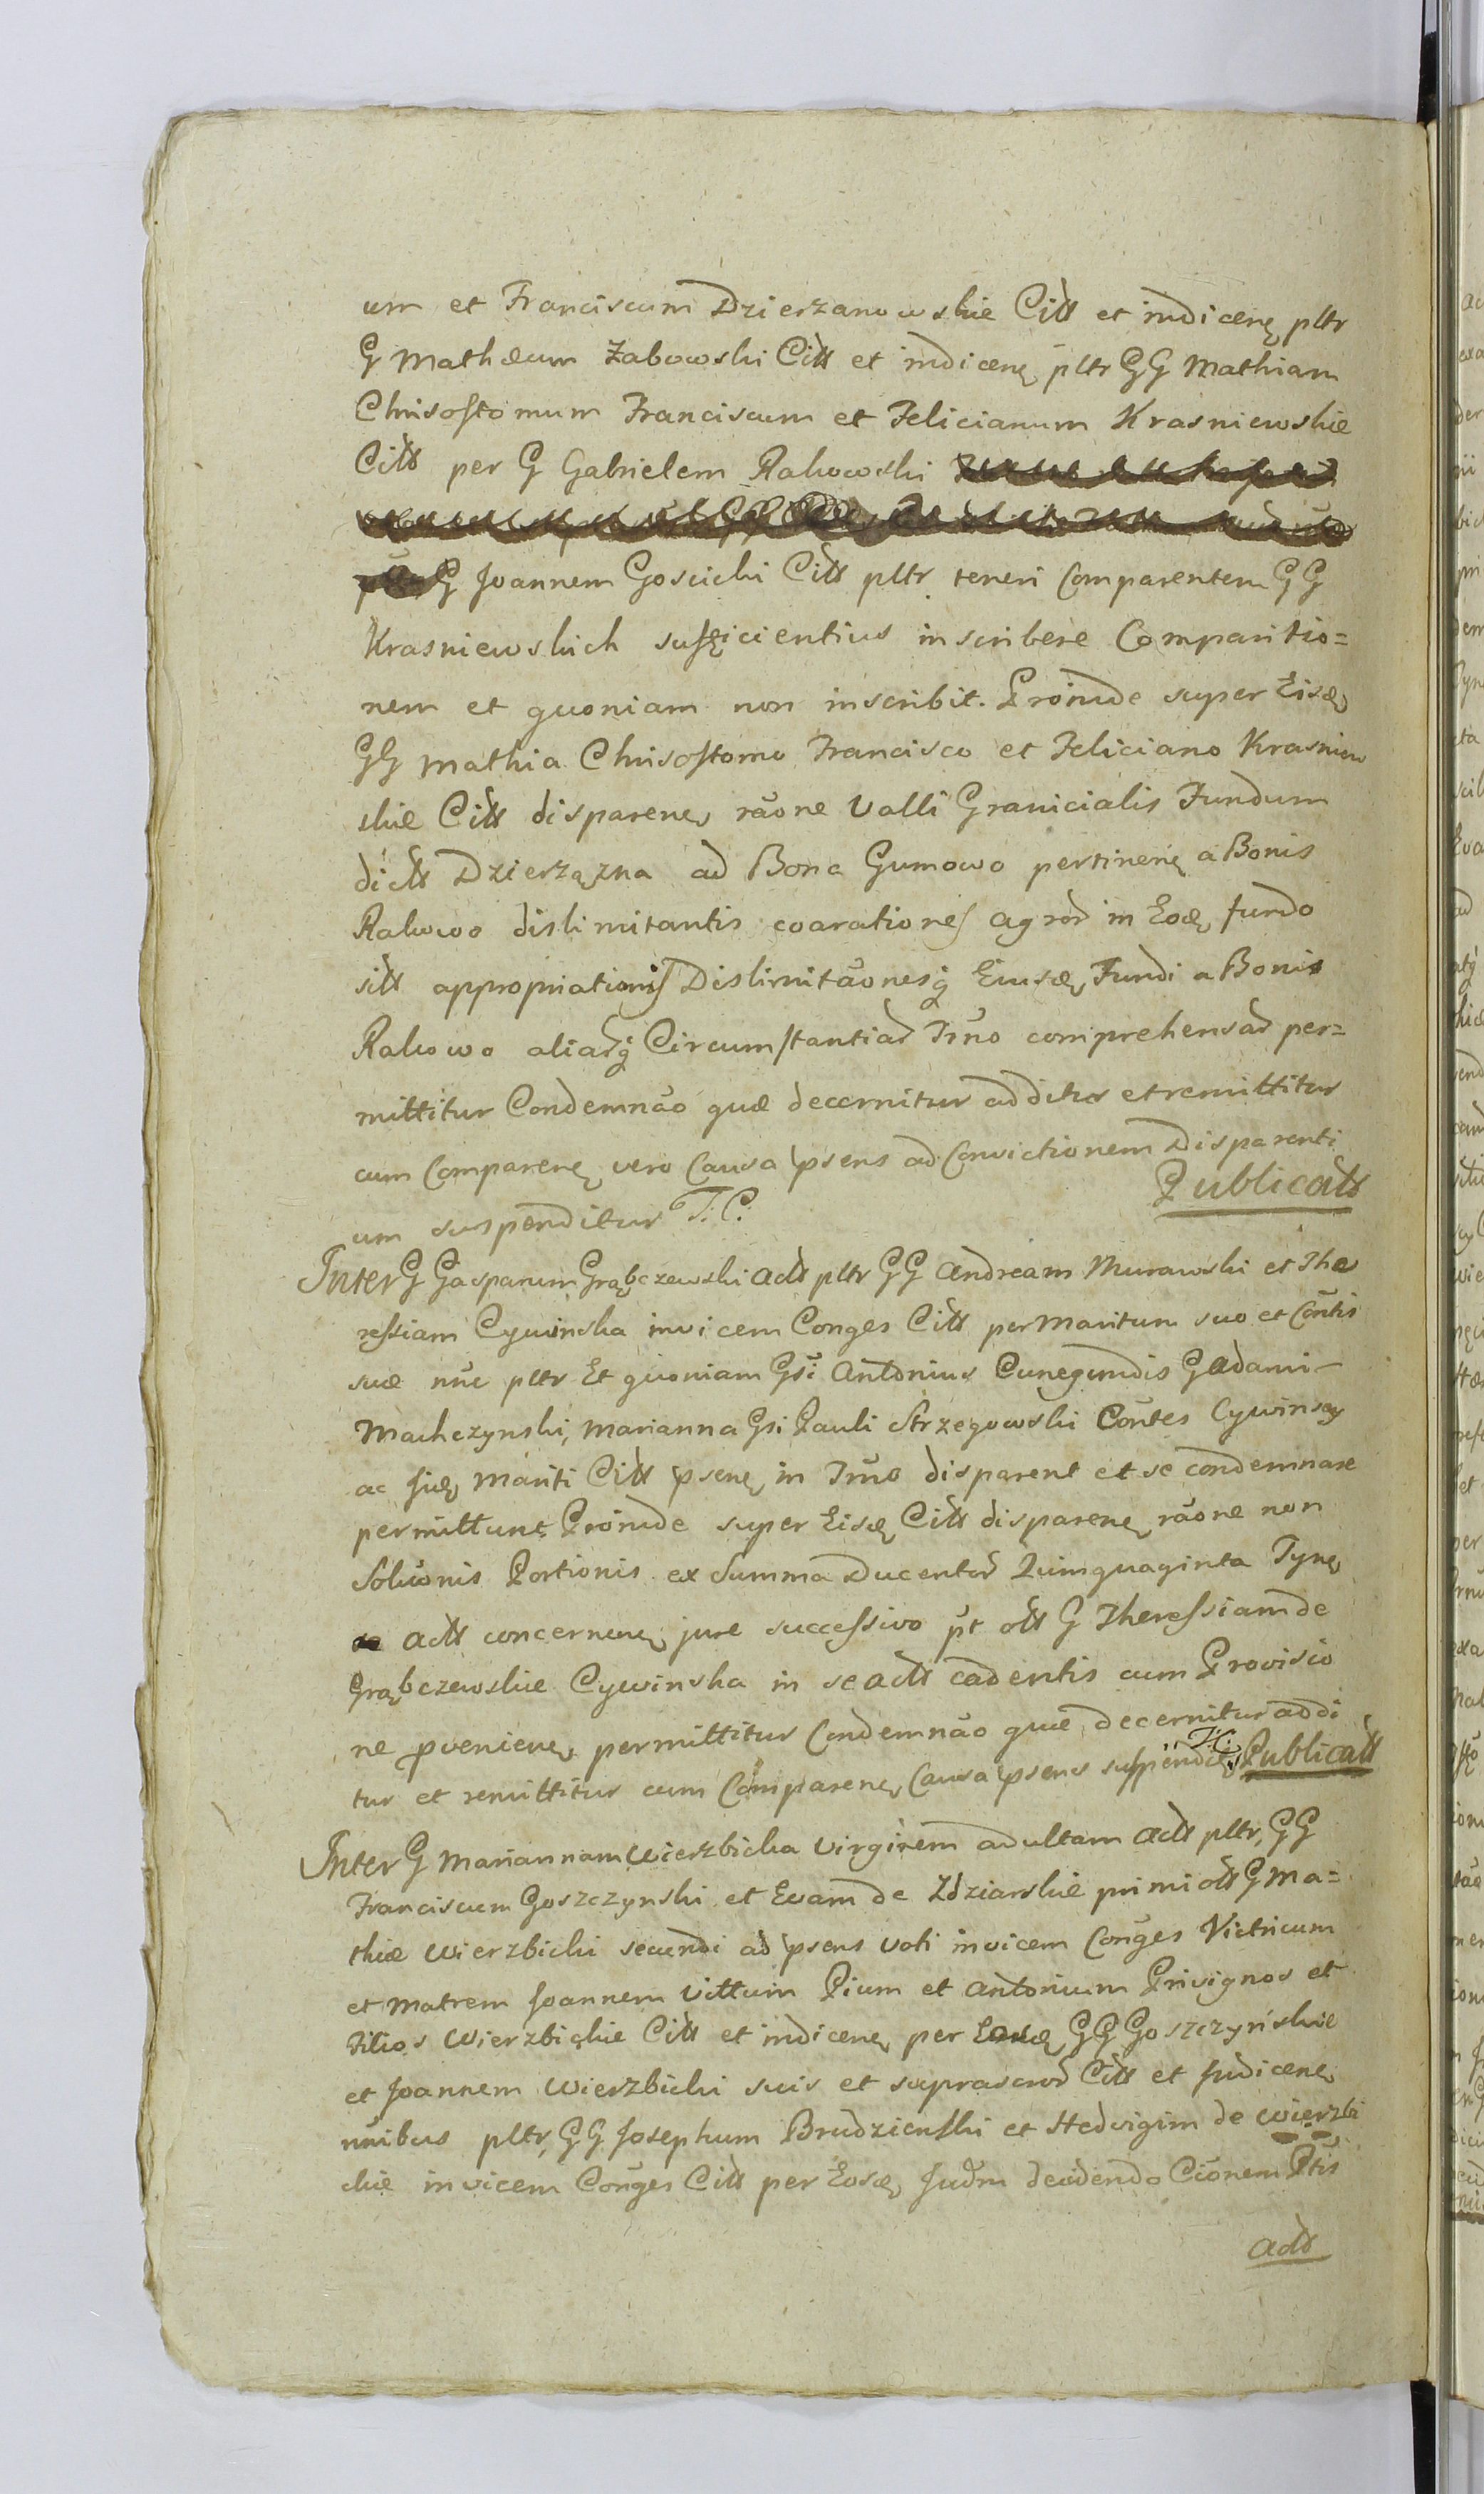 um et Franciscum Dzierzanowskie Citt et indicenę pltr
G Mathæum Zabowski Citt et indicenę pltr GG Mathiam
Chrisostomum Franciscum et Felicianum Krasniewskie
Citt per G Gabrielem Rakowski
G Joannem Goscicki Citt pltr teneri Comparentem GG
Krasniewskich sufficientius inscribere Comparitio=
nem et quoniam non inscribit. Proinde super Eisdę
GG Mathia Chrisostomo Francisco et Feliciano Krasniew
skie Citt disparenę raõne Valli Granicialis Fundum
dictt Dzierzązna ad Bona Gumowo pertinenę a Bonis
Rakowo dislimitantis coarationes agror in Eodę fundo
sitt appropriationis Dislimitãonesq Eiusdę Fundi a Bonis
Rakowo aliarq Circumstantiar Trno comprehensar per=
mittitur Condemnão quæ decernitur additur et remittitur
cum Comparenę vero Causa psens ad Convictionem Disparenti
um suspenditur T. C. Publicatt
Inter G Gasparum Grąbczewski Actt pltr GG Andream Murawski et The
ressiam Cywinska invicem Conges Citt per Maritum suo et Contis
suæ nne pltr Et quoniam Gsi Antonius Cunegundis G Adami
Machczynski, Marianna Gsi Pauli Strzegowski Contes Cywinscy
ac sui Mariti Citt psenę in Trno disparent et se condemnare
permittunt Proinde super Eisdę Citt disparenę raõne non
Soluõnis Portionis ex Summa Ducentor Quinquaginta Tynę
Actt concernenę jure successivo pt ott G Theressiam de
Grąbczewskie Cywinska in se Actt cadentis cum Provisio
ne pvenienę permittitur Condemnão quæ decernitur addi
tur et remittitur cum Comparenę Causa psens suspendit T.C. Publicatt
Inter G Mariannam Wierzbicka Virginem adultam Actt pltr, GG
Franciscum Goszczynski et Evam de Zdziarskie primi ott G Ma=
thiæ Wierzbicki secundi ad psens voti invicem Conges Victricum
et Matrem Joannem Vittum Pium et Antonium Privignos et
Filios Wierzbickie Citt et indicenę per Eosdę GG Goszczyńskie
et Joannem Wierzbicki suis et suprascror Citt et Indicenę
nnibus pltr, GG Josephum Brudzienski et Hedvigim de Wierzbi
ckie invicem Conges Citt per Eosdę Judm decidendo Cõonem Ptis
Actt